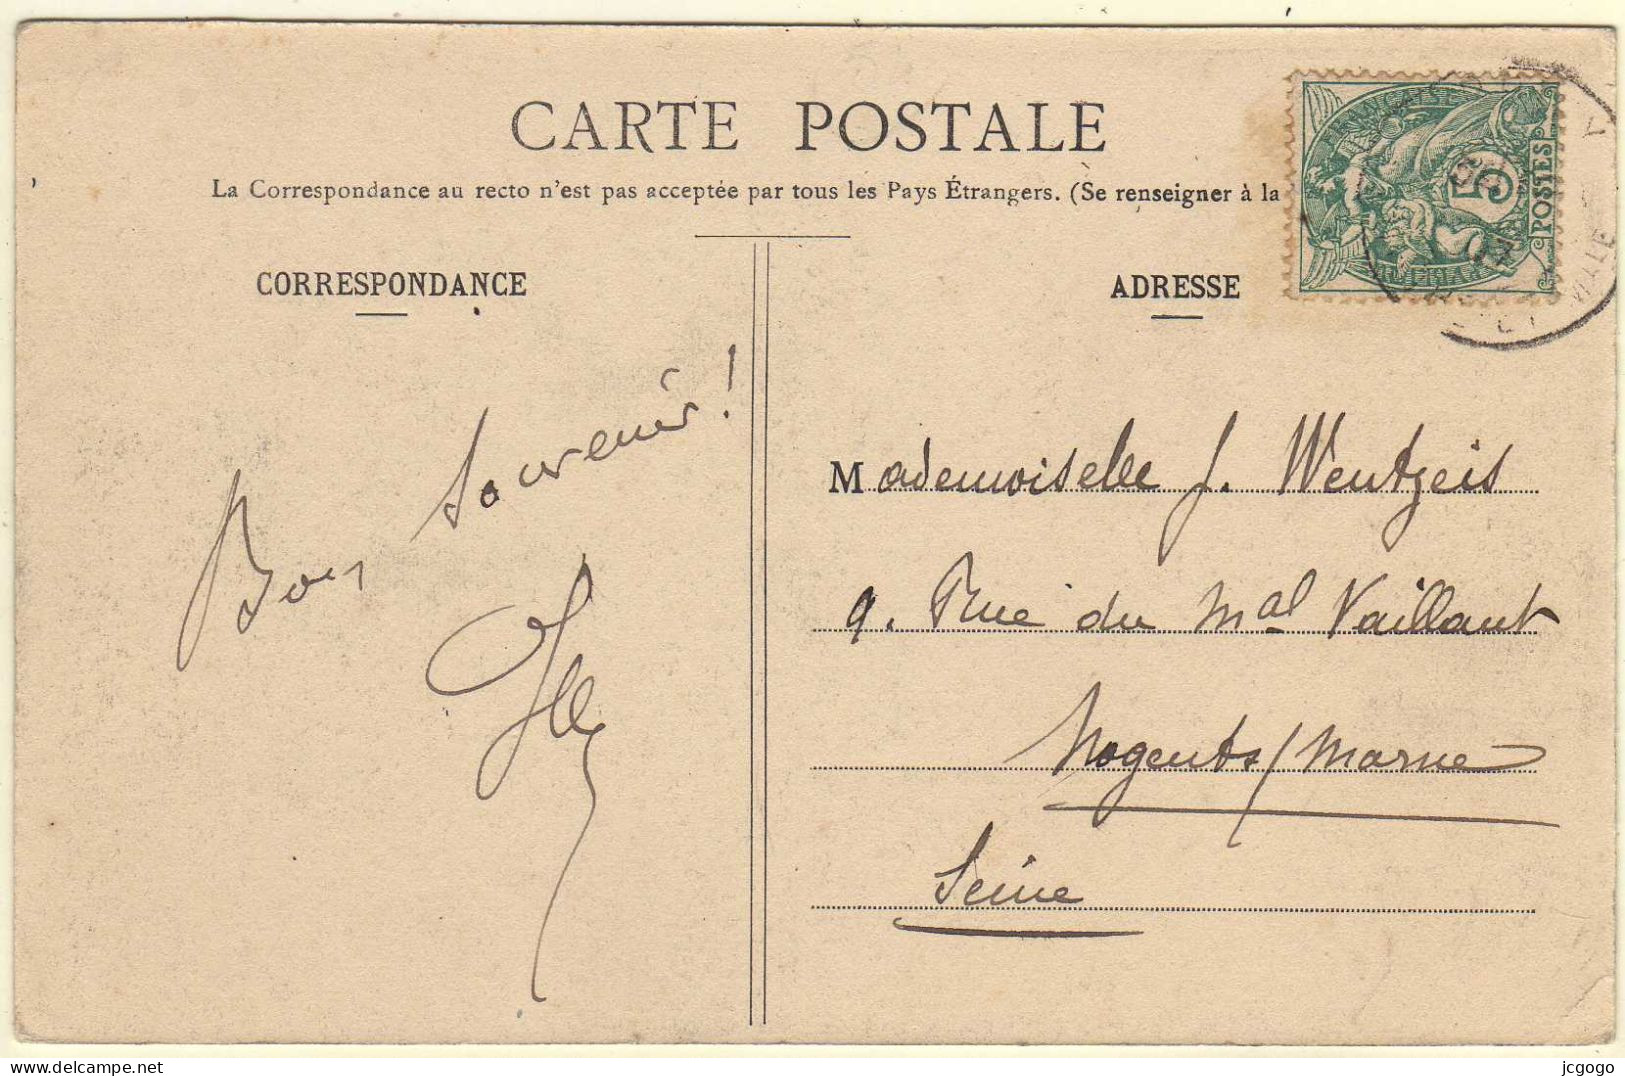 CARTE POSTALE
La Correspondance au recto n'est pas acceptée par tous les Pays Étrangers. (Se renseigner à la
CORRESPONDANCE
ADRESSE
FRANÇAISE
5
POSTES
Bon souvenir!
Mademoiselle J. Wentzeis
9. Rue du Mal Vaillant
Nogents/Marne
Seine
jcgogo